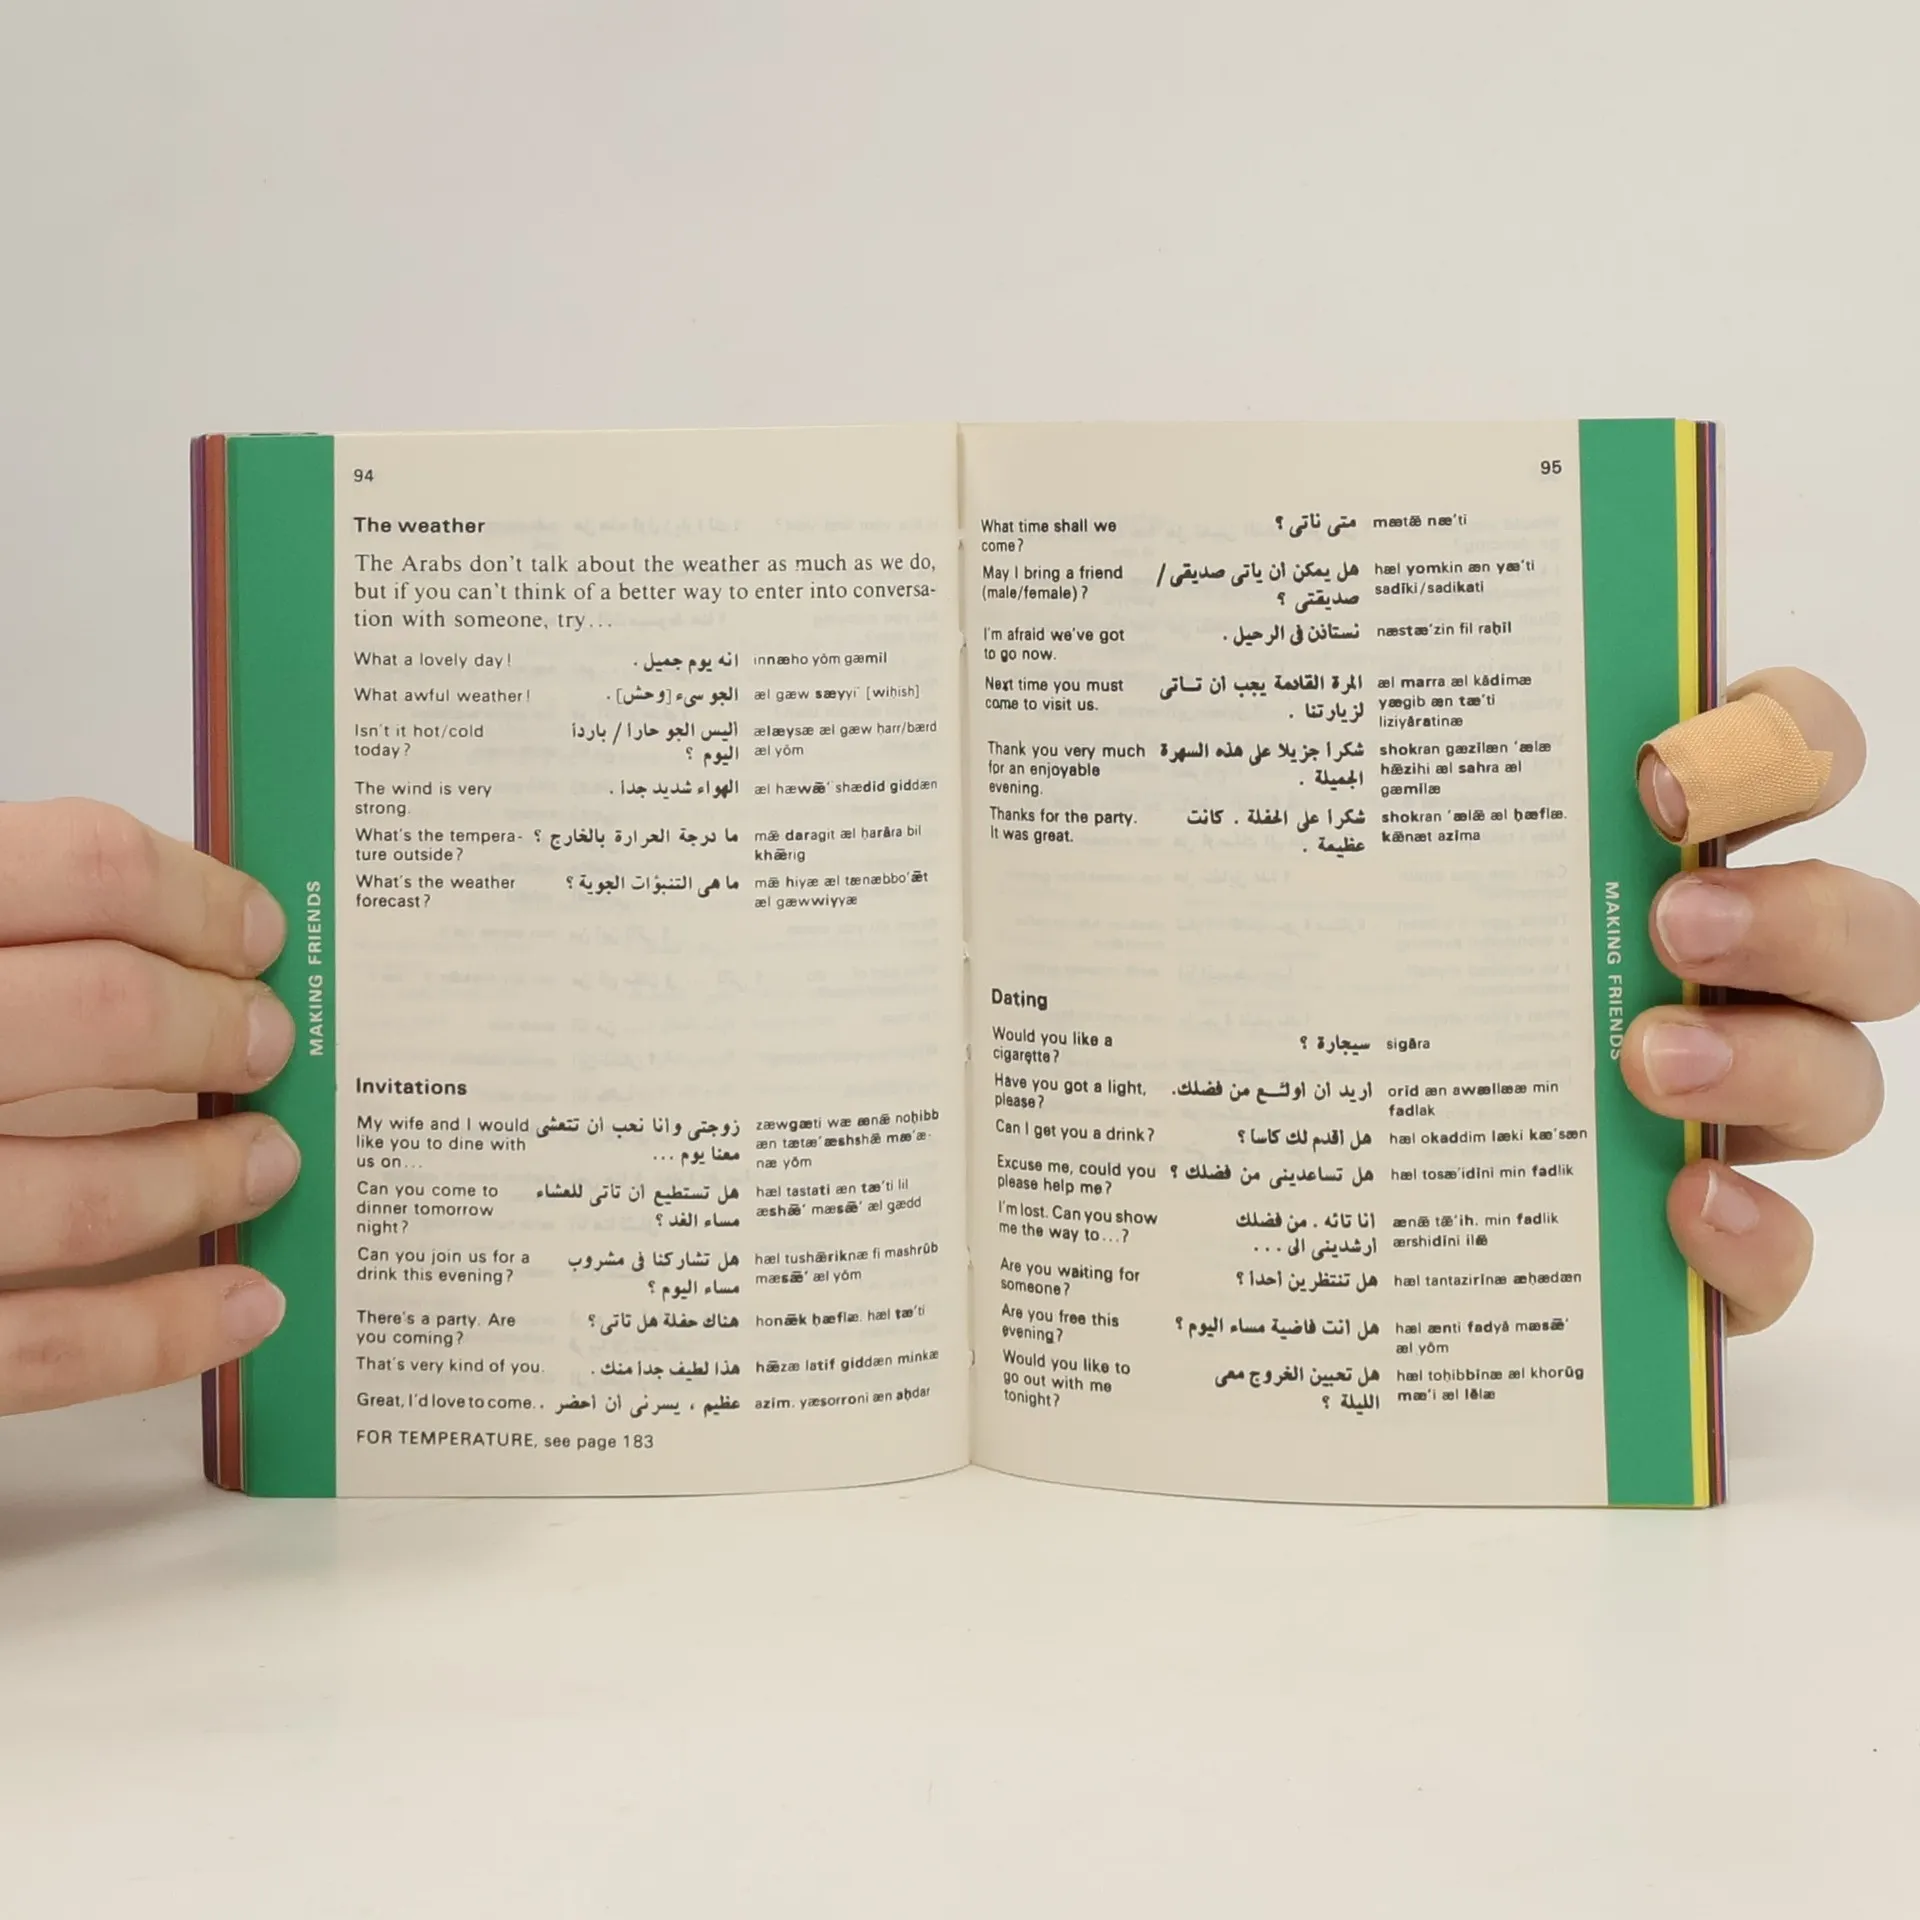 94
The weather
The Arabs don't talk about the weather as much as we do,
but if you can't think of a better way to enter into conversa-
tion with someone, try...
What a lovely day! انه يوم جميل . innæho yôm gæmil
What awful weather! الجو سىء [وحش]. æl gæw sæyyi' [wiḥish]
Isn't it hot/cold أليس الجو حارا / باردأ ælæysæ æl gæw ḥarr/bærd
today? اليوم ؟ æl yôm
The wind is very الهواء شديد جدا . æl hæwǣ' shædid giddæn
strong.
What's the tempera- ما درجة الحرارة بالخارج ؟ mǣ daragit æl ḥarâra bil
ture outside? khǣrig
What's the weather ما هى التنبؤات الجوية ؟ mǣ hiyæ æl tænæbbo'ǣt
forecast? æl gæwwiyyæ
Invitations
My wife and I would زوجتى وانا نحب ان تتعشى zæwgæti wæ ænǣ noḥibb
like you to dine with معنا يوم ... æn tætæ'æshshǣ mæ'æ-
us on... næ yôm
Can you come to هل تستطيع ان تأتى للعشاء hæl tastati æn tæ'ti lil
dinner tomorrow مساء الغد ؟ æshǣ' mæsǣ' æl gædd
night?
Can you join us for a هل تشاركنا فى مشروب hæl tushǣriknæ fi mashrûb
drink this evening? مساء اليوم ؟ mæsǣ' æl yôm
There's a party. Are هناك حفلة هل تأتى ؟ honǣk ḥæflæ. hæl tæ'ti
you coming?
That's very kind of you. هذا لطيف جدأ منك . hǣzæ latif giddæn minkæ
Great, I'd love to come. . عظيم ، يسرنى ان احضر azim. yæsorroni æn aḥdar
FOR TEMPERATURE, see page 183
MAKING FRIENDS
95
What time shall we متى ناتى ؟ mætǣ næ'ti
come?
May I bring a friend هل يمكن ان ياتى صديقى / hæl yomkin æn yæ'ti
(male/female)? صديقتى ؟ sadîki/sadikati
I'm afraid we've got نستاذن فى الرحيل . næstæ'zin fil raḥîl
to go now.
Next time you must المرة القادمة يجب ان تـاتى æl marra æl kâdimæ
come to visit us. لزيارتنا . yægib æn tæ'ti
liziyâratinæ
Thank you very much شكرا جزيلا على هذه السهرة shokran gæzilæn 'ælæ
for an enjoyable الجميلة . hǣzihi æl sahra æl
evening. gæmîlæ
Thanks for the party. شكرا على الحفلة . كانت shokran 'ælǣ æl ḥæflæ.
It was great. عظيمة . kǣnæt azîma
Dating
Would you like a سيجارة ؟ sigâra
cigarette?
Have you got a light, اريد ان اولـع من فضلك. orîd æn awællææ min
please? fadlak
Can I get you a drink? هل اقدم لك كاسا ؟ hæl okaddim læki kæ'sæn
Excuse me, could you هل تساعدينى من فضلك ؟ hæl tosæ'idîni min fadlik
please help me?
I'm lost. Can you show انا تائه . من فضلك ænǣ tǣ'ih. min fadlik
me the way to...? ارشدينى الى ... ærshidîni ilǣ
Are you waiting for هل تنتظرين أحدا ؟ hæl tantazirînæ æḥædæn
someone?
Are you free this هل انت فاضية مساء اليوم ؟ hæl ænti fadyâ mæsǣ'
evening? æl yôm
Would you like to هل تحبين الخروج معى hæl toḥibbînæ æl khorûg
go out with me الليلة ؟ mæ'i æl lêlæ
tonight?
MAKING FRIENDS